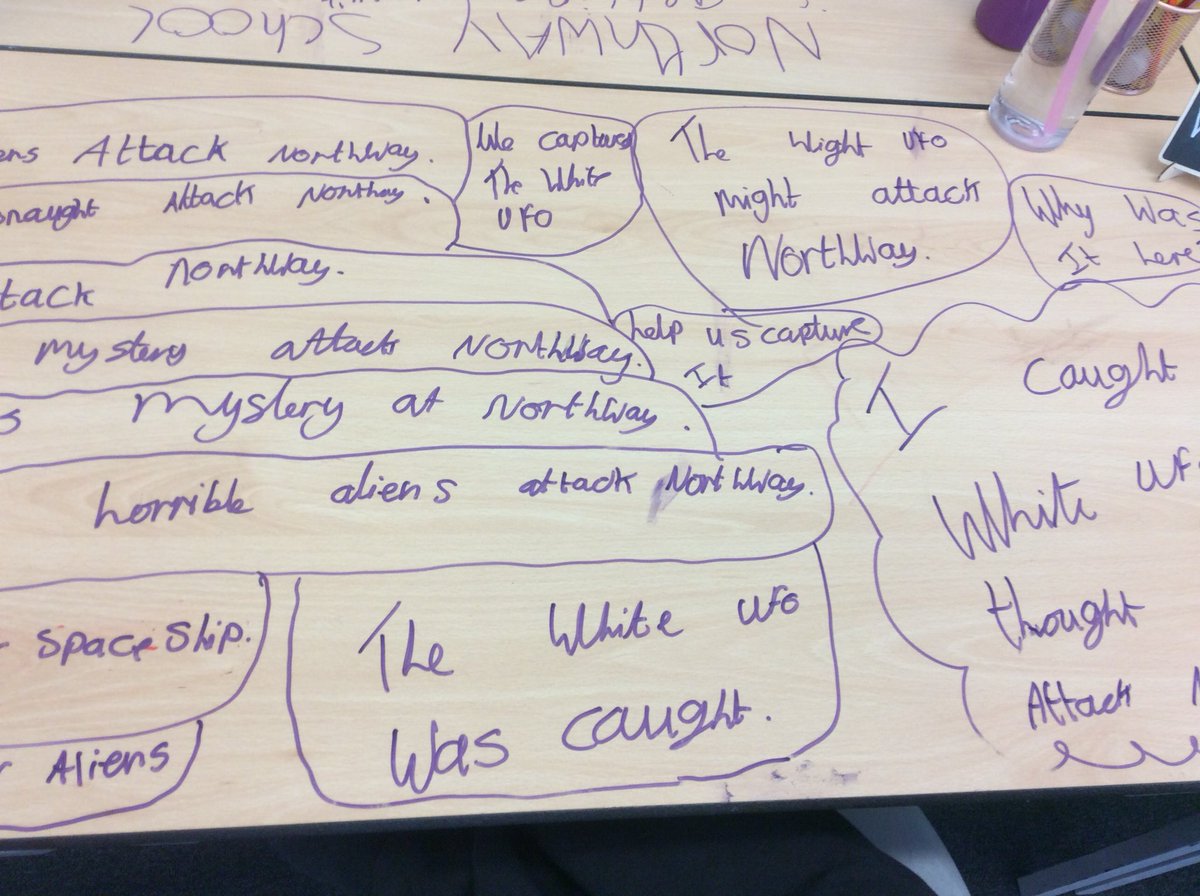 Northway School
ens Attack Northway.
onaught Attack Northay.
tack Northway.
mystery attack Northway.
s mystery at Northway.
horrible aliens attack Northway.
SpaceShip.
Aliens
We capture
The White
UFO
The Wight UFO
might attack
Northway.
Why Was
It here
help us capture
It
The White UFO
Was caught.
I caught
White UF
thought
Attack N